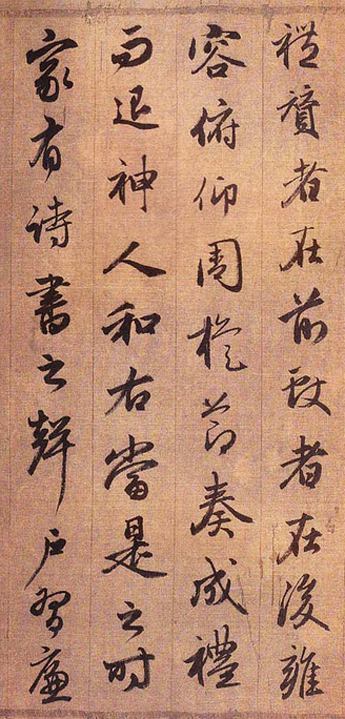 禮贊者在前殿者在後雍
容俯仰周旋節奏成禮
而退神人和右當是之時
家有詩書之聲戶習廉